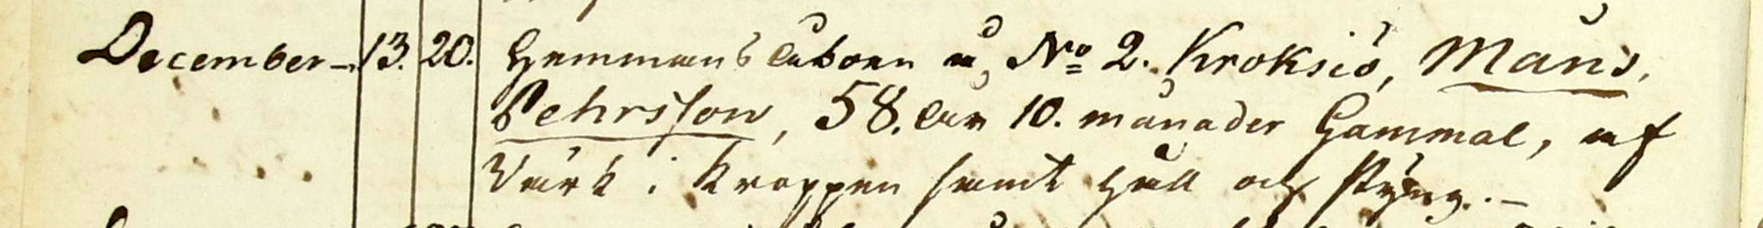 December. 13. 20. Hemmans Åboen å N:o 2. Kroksjö, Måns
Pehrsson, 58. år 10. månader Gammal, af
Värk i Kroppen samt Håll och Styng.